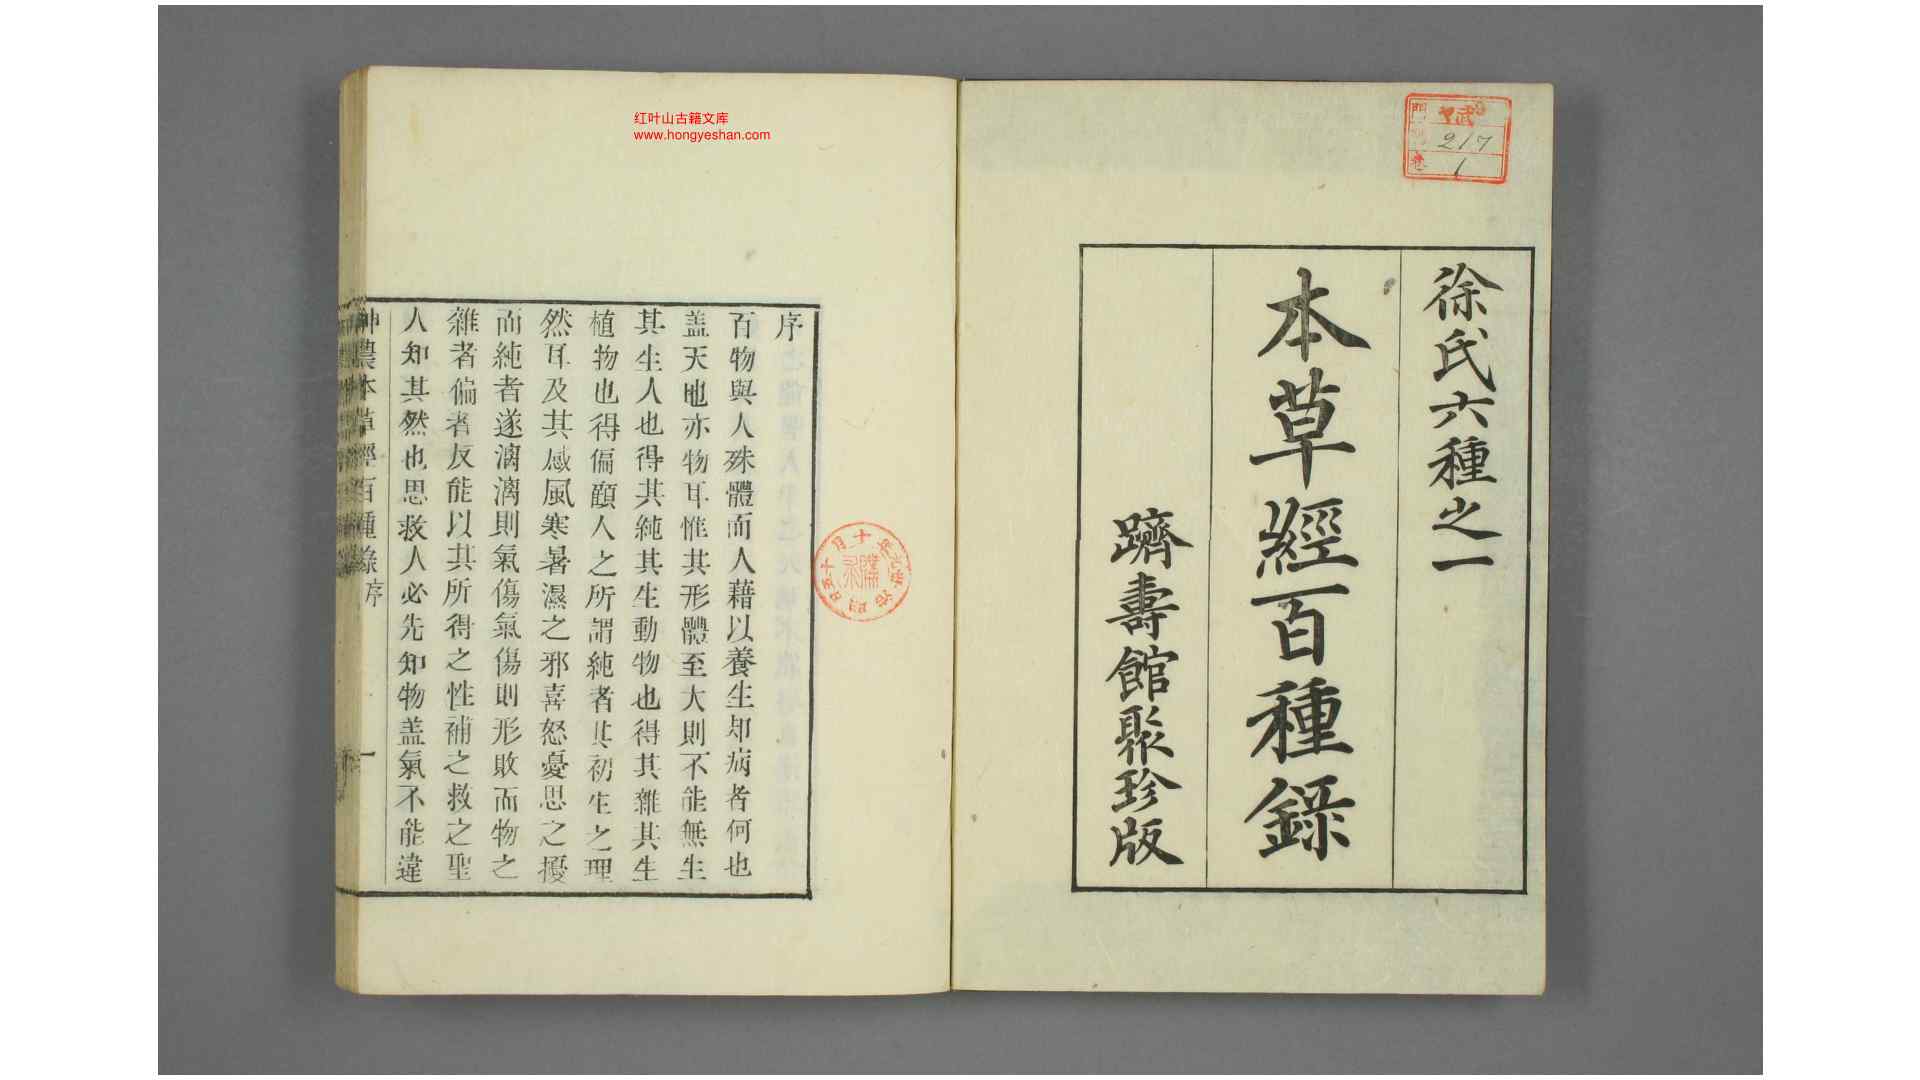 徐氏六種之一
本草經百種錄
躋壽館聚珍版
217
1
红叶山古籍文库
www.hongyeshan.com
序
百物與人殊體而人藉以養生却病者何也
盖天地亦物耳惟其形體至大則不能無生
其生人也得其純其生動物也得其雜其生
植物也得偏顧人之所謂純者其初生之理
然耳及其感風寒暑濕之邪喜怒憂思之擾
而純者遂漓漓則氣傷氣傷則形敗而物之
雜者偏者反能以其所得之性補之救之聖
人知其然也思救人必先知物盖氣不能違
神農本草經百種錄序
一